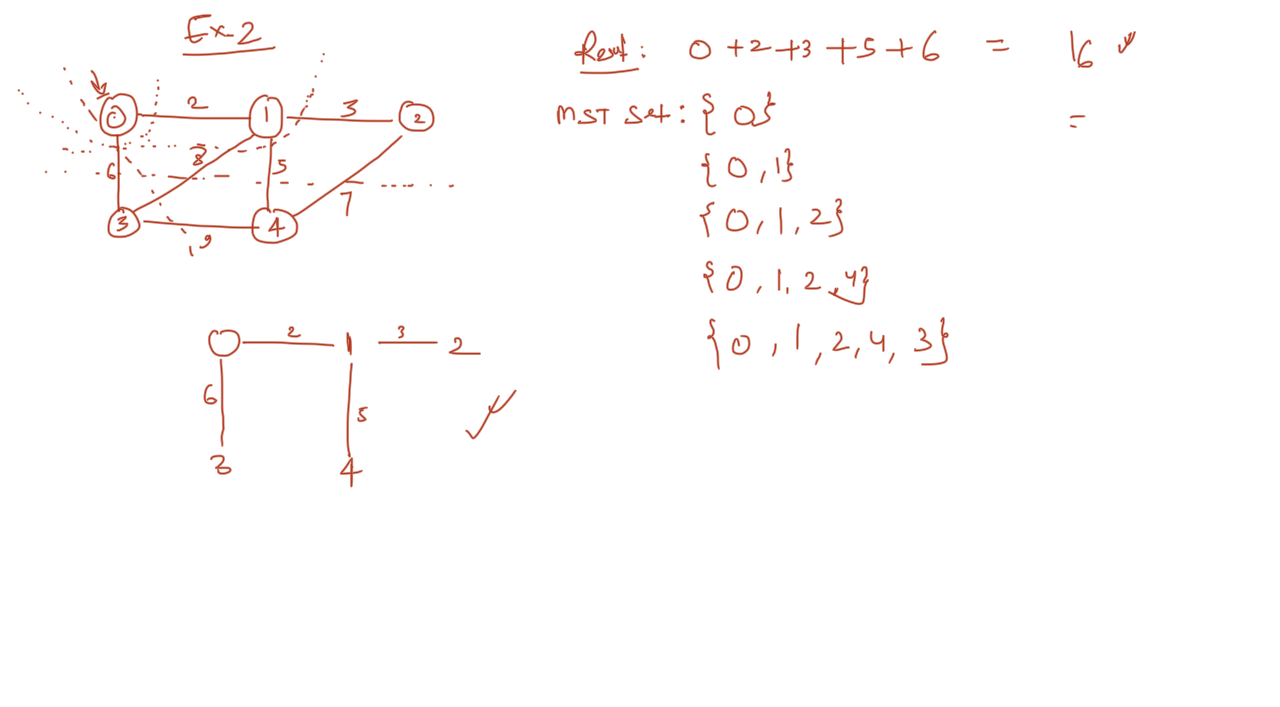 Ex-2
0 2 1 3 2
6 8 5 7
3 9 4
0 2 1 3 2
6 5
3 4
Result: 0 +2 +3 +5 +6 = 16
MST Set: {0} =
{0, 1}
{0, 1, 2}
{0, 1, 2, 4}
{0, 1, 2, 4, 3}